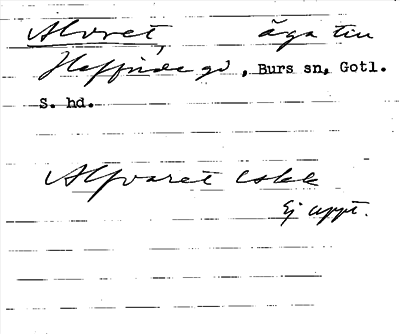 Alvret, äga till
Haffride gd, Burs sn, Gotl.
S. hd.
Alfvaret Eskk
Ej uppt.